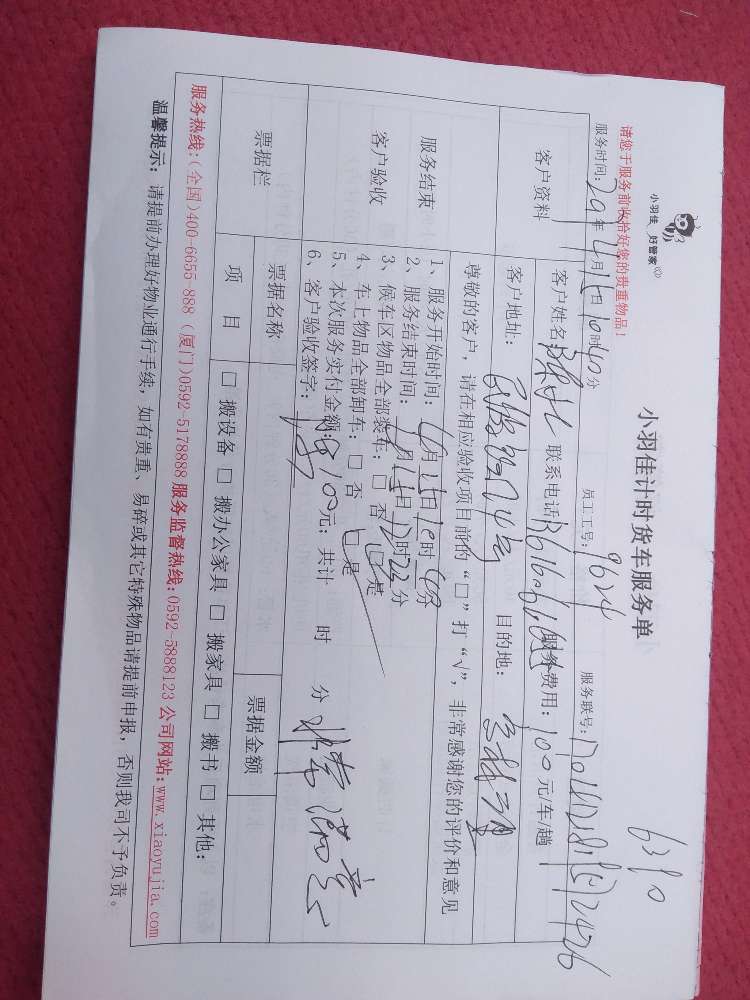 小羽佳 好管家
请您于服务前收拾好您的贵重物品！
小羽佳计时货车服务单
6390
服务时间： 年4月15日10时40分 员工工号：9624 服务联号：
客户资料 客户姓名： 联系电话： 服务费用：100元/车/趟
客户地址： 目的地：
尊敬的客户，请在相应验收项目前的“□”打“√”，非常感谢您的评价和意见
服务结束
客户验收
1、服务开始时间： 月15日10时40分
2、服务结束时间： 月15日12时22分
3、候车区物品全部装车：□ 否 □ 是
4、车上物品全部卸车：□ 否 □ 是
5、本次服务实付金额：100元；共计 时 分
6、客户验收签字：
非常满意
票据栏 票据名称 票据金额
项 目 □ 搬设备 □ 搬办公家具 □ 搬家具 □ 搬书 □ 其他：
服务热线：(全国)400-6655-888 (厦门)0592-5178888 服务监督热线：0592-5888123 公司网站：www.xiaoyujia.com
温馨提示：请提前办理好物业通行手续，如有贵重、易碎或其它特殊物品请提前申报，否则我司不予负责。